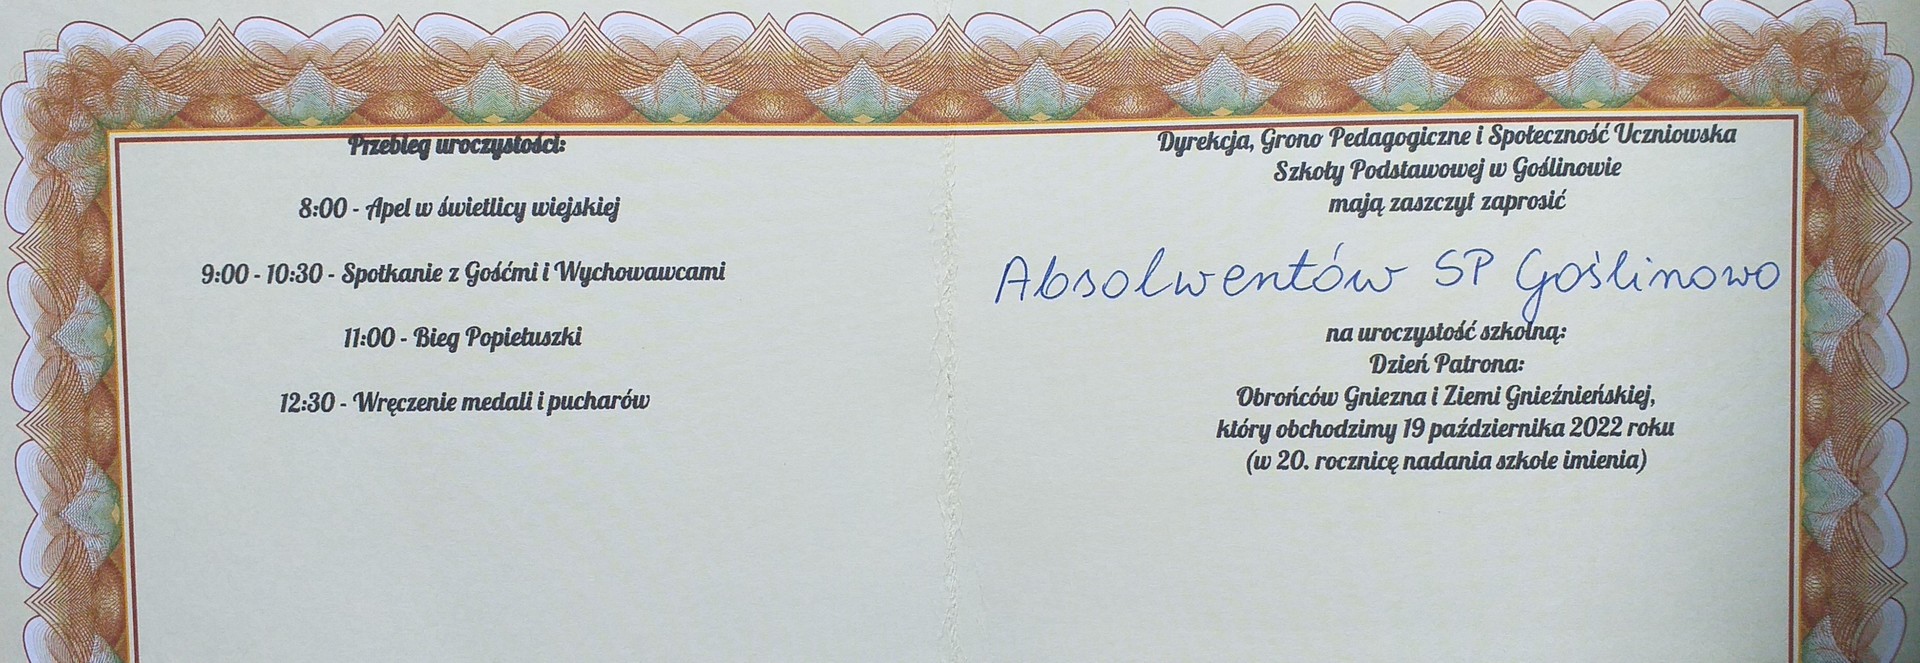 Przebieg uroczystości:
8:00 - Apel w świetlicy wiejskiej
9:00 - 10:30 - Spotkanie z Gośćmi i Wychowawcami
11:00 - Bieg Popiełuszki
12:30 - Wręczenie medali i pucharów
Dyrekcja, Grono Pedagogiczne i Społeczność Uczniowska
Szkoły Podstawowej w Goślinowie
mają zaszczyt zaprosić
Absolwentów SP Goślinowo
na uroczystość szkolną:
Dzień Patrona:
Obrońców Gniezna i Ziemi Gnieźnieńskiej,
który obchodzimy 19 października 2022 roku
(w 20. rocznicę nadania szkole imienia)